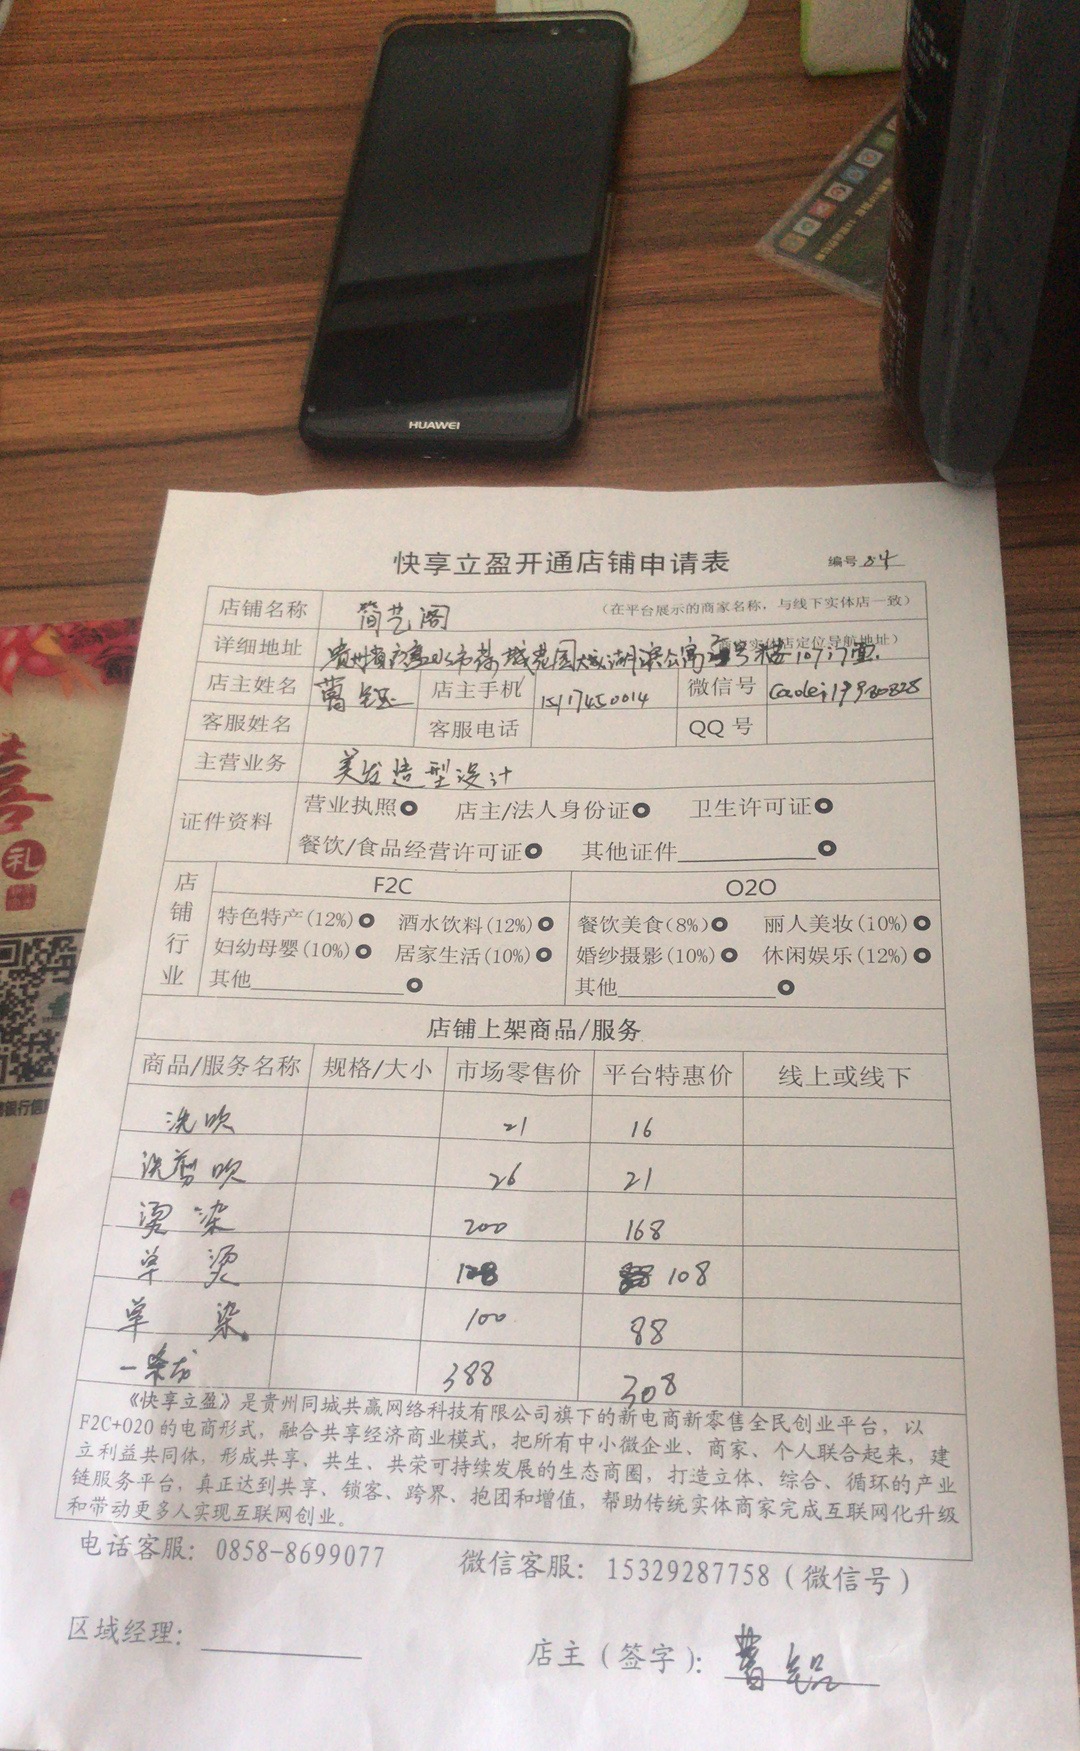 HUAWEI
快享立盈开通店铺申请表
编号 04
店铺名称 简艺阁 （在平台展示的商家名称，与线下实体店一致）
详细地址 贵州省六盘水市荷城花园 湖滨公寓 号楼
店主姓名 曹 店主手机 15117450014 微信号
客服姓名 客服电话 QQ 号
主营业务 美发造型设计
证件资料 营业执照 店主/法人身份证 卫生许可证
餐饮/食品经营许可证 其他证件
店铺行业 F2C O2O
特色特产(12%) 酒水饮料(12%) 餐饮美食(8%) 丽人美妆(10%)
妇幼母婴(10%) 居家生活(10%) 婚纱摄影(10%) 休闲娱乐(12%)
其他 其他
店铺上架商品/服务
商品/服务名称 规格/大小 市场零售价 平台特惠价 线上或线下
洗吹 21 16
洗剪吹 26 21
烫 染 200 168
单 烫 128 108
单 染 100 88
388 308
《快享立盈》是贵州同城共赢网络科技有限公司旗下的新电商新零售全民创业平台，以
F2C+O2O 的电商形式，融合共享经济商业模式，把所有中小微企业、商家、个人联合起来，建
立利益共同体，形成共享、共生、共荣可持续发展的生态商圈，打造立体、综合、循环的产业
链服务平台，真正达到共享、锁客、跨界、抱团和增值，帮助传统实体商家完成互联网化升级
和带动更多人实现互联网创业。
电话客服：0858-8699077 微信客服：15329287758（微信号）
区域经理： 店主（签字）：曹
喜
礼